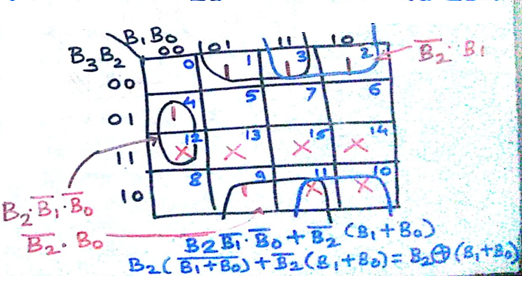 B₁B₀
B₃B₂ 00 01 11 10
00 0 1 1 1 3 1 2 B̅₂·B₁
01 1 4 5 7 6
11 X 12 X 13 X 15 X 14
10 8 1 9 X 11 X 10
B₂·B̅₁·B̅₀
B̅₂·B₀
B₂B̅₁·B̅₀+B̅₂(B₁+B₀)
B₂(B̅₁̅+̅B̅₀̅)+B̅₂(B₁+B₀)=B₂⊕(B₁+B₀)